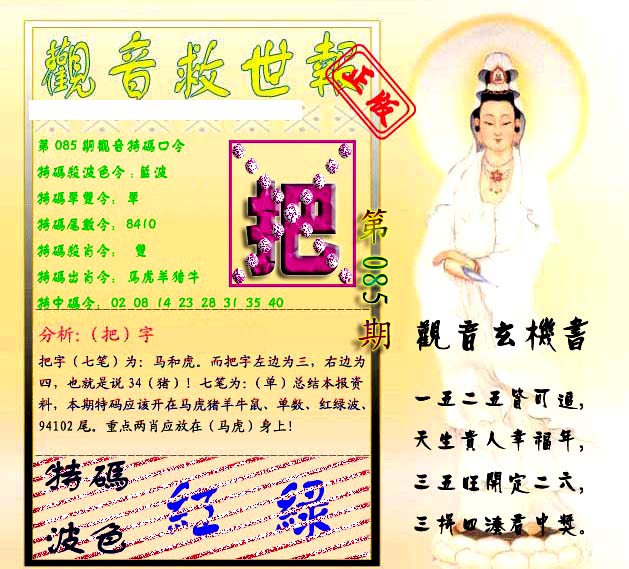 觀音救世報
正版
第 085 期觀音特碼口令
特碼殺波色令：藍波
特碼單雙令： 單
特碼尾數令： 8410
特碼殺肖令： 雙
特碼出肖令： 馬虎羊猪牛
特中碼令： 02 08 14 23 28 31 35 40
把
第 085 期
分析：（把）字
把字（七笔）为：马和虎。而把字左边为三，右边为
四，也就是说 34（猪）！七笔为：（单）总结本报资
料，本期特码应该开在马虎猪羊牛鼠、单数、红绿波、
94102 尾。重点两肖应放在（马虎）身上！
特碼
波色
紅 綠
觀音玄機書
一五二五皆可追，
天生貴人幸福年，
三五旺開定二六，
三操四湊看中獎。